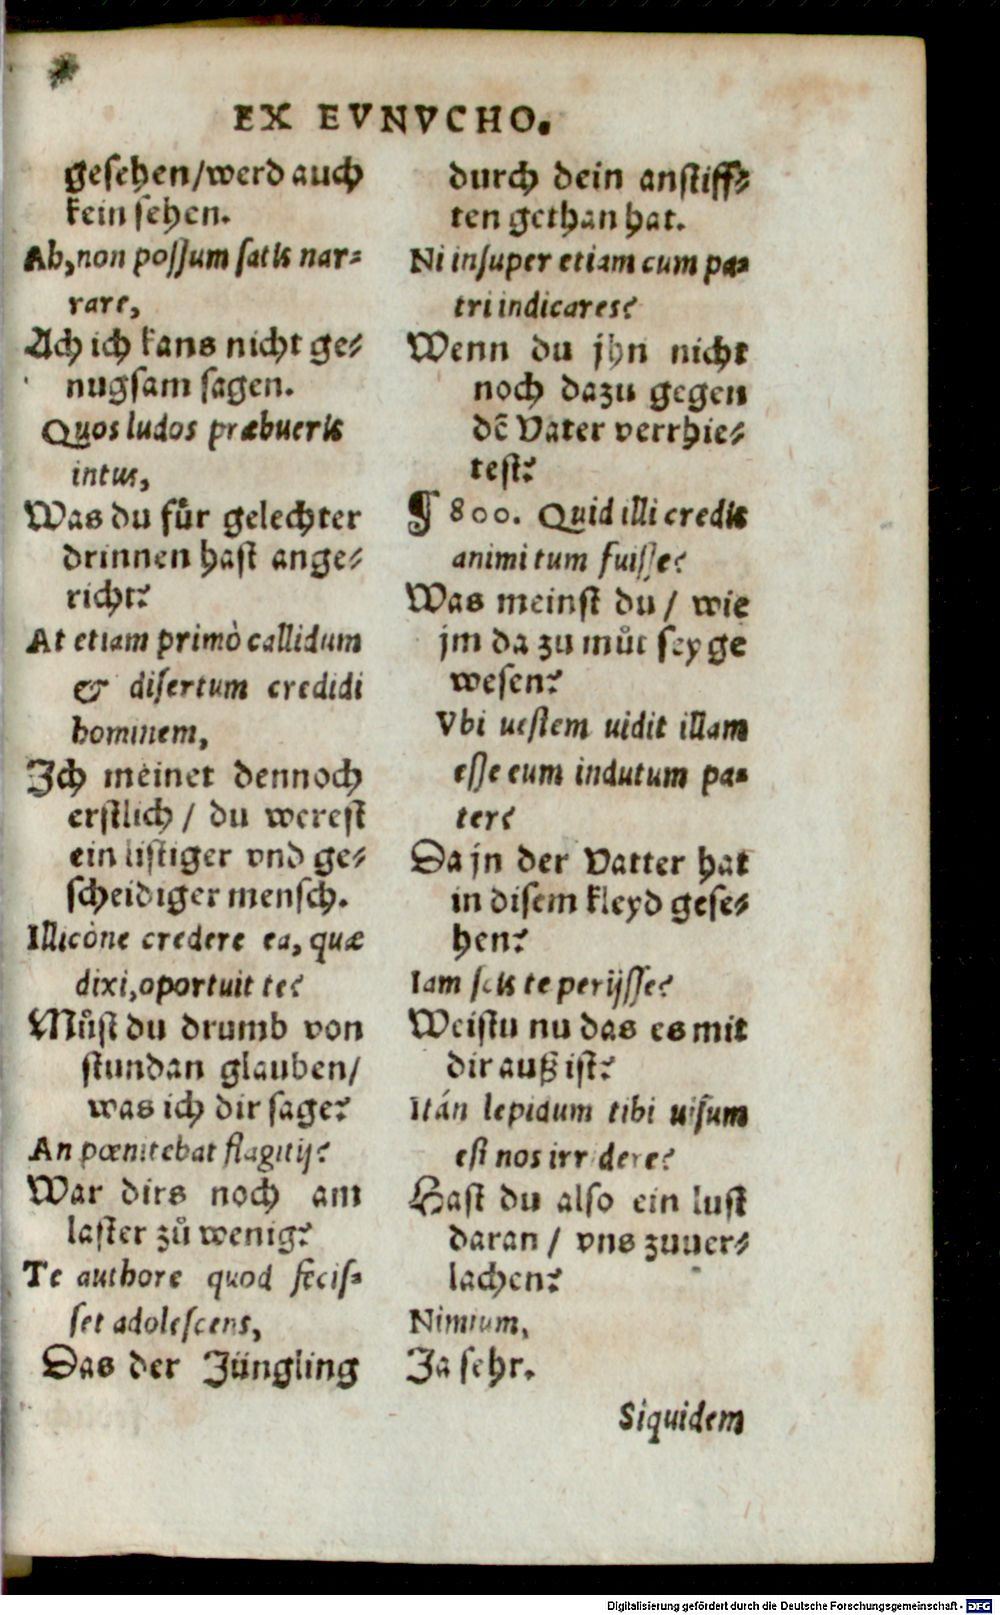 EX EVNVCHO.
gesehen/werd auch
kein sehen.
Ah, non possum satis nar-
rare,
Ach ich kans nicht ge-
nugsam sagen.
Quos ludos præbueris
intus,
Was du für gelechter
drinnen hast ange-
richt?
At etiam primò callidum
& disertum credidi
hominem,
Ich meinet dennoch
erstlich / du werest
ein listiger vnd ge-
scheidiger mensch.
Illicòne credere ea, quæ
dixi, oportuit te?
Můst du drumb von
stundan glauben/
was ich dir sage?
An pœnitebat flagitij?
War dirs noch am
laster zů wenig?
Te authore quod fecis-
set adolescens,
Das der Jüngling
durch dein anstiff-
ten gethan hat.
Ni insuper etiam cum pa-
tri indicares?
Wenn du jhn nicht
noch dazu gegen
dẽ Vater verrhie-
test?
¶ 800. Quid illi credis
animi tum fuisse?
Was meinst du / wie
jm da zu můt sey ge
wesen?
Vbi uestem uidit illam
esse eum indutum pa-
ter?
Da jn der Vatter hat
in disem kleyd gese-
hen?
Iam scis te perijsse?
Weistu nu das es mit
dir auß ist?
Itán lepidum tibi uisum
est nos irridere?
Hast du also ein lust
daran / vns zuuer-
lachen?
Nimium,
Ja sehr.
Siquidem
Digitalisierung gefördert durch die Deutsche Forschungsgemeinschaft - DFG